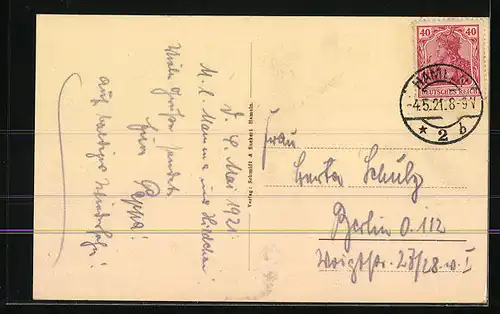 D. 4. Mai 1921.
M. l. Mamma und Hildchen!
Viele Grüße sendet
Euer Pappa!
Auf baldiges Wiedersehn!
Verlag: Schmidt & Haubert Hameln.
40 40
DEUTSCHES REICH
HAMELN
-4.5.21.8-9V
* 2 b
Frau
Herta Schulz
Berlin O. 112